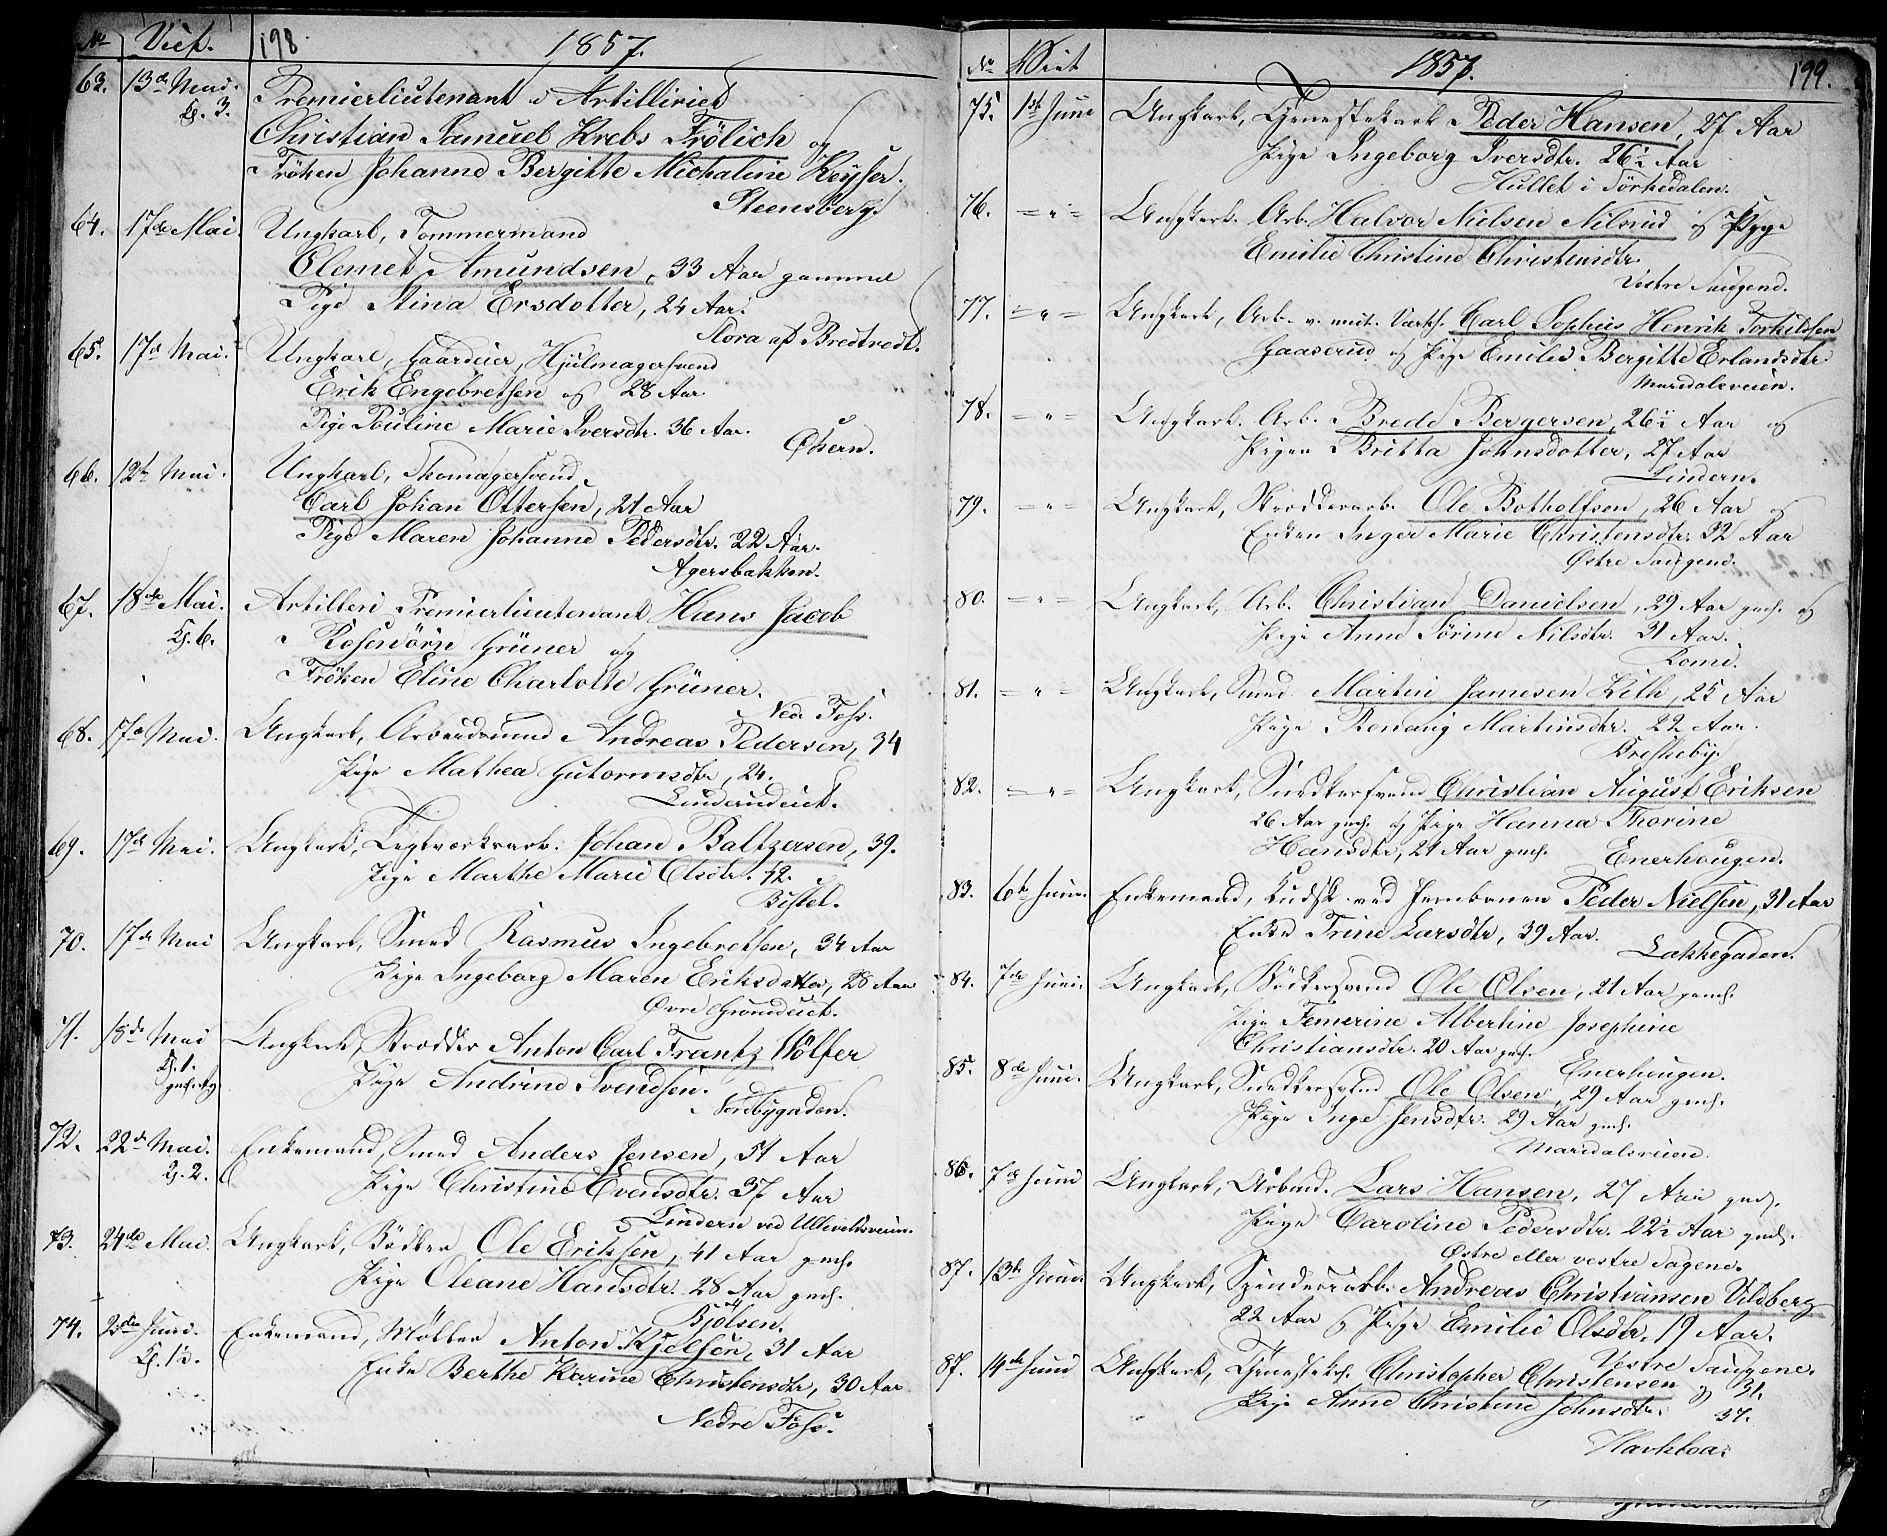 No Viet. 198 1857.
63. 13de Mai. Premierlieutenant i Artilleriet
Kl. 3.
Christian Samuel Krebs Frölich og
Fröken Johanne Bergitte Michaline Keyser.
Steensberg.
64. 17de Mai. Ungkarl, Tømmermand
Clemet Amundsen, 33 Aar gammel
Pige Stina Ersdotter, 24 Aar.
Flora af Bredtvedt.
65. 17de Mai. Ungkarl, Gaardeier, Hjulmagersvend
Erik Engebretsen og 28 Aar
Pige Pouline Marie Iversdtr. 36 Aar.
Økern.
66. 12te Mai. Ungkarl, Skomagersvend
Carl Johan Ottersen, 21 Aar
Pige Maren Johanne Pedersdtr. 22 Aar.
Agersbakken.
67. 18de Mai. Artilleri Premierlieutenant Hans Jacob
Kl. 6. Rosenörn Grüner og
Fröken Eline Charlotte Grüner.
Ned. Foss.
68. 17de Mai. Ungkarl, Arbeidsmand Andreas Pedersen, 34
Pige Mathea Gutormsdtr, 24.
Linderudeiet.
69. 17de Mai. Ungkarl, Teglværksarb. Johan Baltzersen, 39.
Pige Marthe Marie Olsdtr. 42.
Bislet.
70. 17de Mai Ungkarl, Smed Rasmus Ingebretsen, 34 Aar
Pige Ingeborg Maren Eriksdatter, 28 Aar
Øvre Grondeiet.
71. 18de Mai Ungkarl, Skrædder Anton Carl Frantz Wölfer
Kl. 1.
Pige Andrine Svendsen.
Nordbygaden.
72. 22de Mai. Enkemand, Smed Anders Jensen, 51 Aar
Kl. 2. Pige Christine Evensdtr. 37 Aar
Lindern ved Ullevoldsveien.
73. 24de Mai. Ungkarl, Bødker Ole Eriksen, 41 Aar gml.
Pige Oleane Hansdtr. 28 Aar gml.
Bjölsen.
74. 2den Juni. Enkemand, Møller Anton Kjelsen, 31 Aar
Kl. 1½. Enke Berthe Karine Christensdtr, 30 Aar
Nedre Foss.
No Viet 1857. 199.
75. 1ste Juni Ungkarl, Tjenestekarl Peder Hansen, 27 Aar
Pige Ingeborg Iversdtr. 26½ Aar
Hullet i Sörkedalen.
76. = " = Ungkarl. Arb. Halvor Nielsen Nilsrud og Pige
Emilie Christine Christensdtr.
Vestre Saugend.
77. = " = Ungkarl, Arb. v. mek. Værks. Carl Sophus Henrik Torkildsen
Gaaserud og Pige Emilie Bergitte Erlandsdtr.
Maridalsveien.
78. = " = Ungkarl. Arb. Brede Bergersen, 26½ Aar og
Pigen Britta Johnsdotter, 27 Aar
Lindern.
79. = " = Ungkarl, Skrædderarb. Ole Botholfsen, 26 Aar og
Enken Inger Marie Christensdtr. 32 Aar
Østre Saugend.
80. = " = Ungkarl, Arb. Christian Danielsen, 29 Aar gml. og
Pige Anne Sörine Nilsdtr. 31 Aar.
81. = " = Ungkarl, Smed Martin Jamesen Lilh, 25 Aar
Pige Rennaug Martinsdtr. 22 Aar.
Briskeby.
82. = " = Ungkarl, Snedkersvend Christian August Eriksen
26 Aar gml. og Pige Hanna Thorine
Hansdtr, 21 Aar gml. Enerhougen.
83. 6te Juni. Enkemand, Kudsk ved Jernbanen Peder Nielsen, 31 Aar
Enke Trine Larsdtr, 39 Aar.
Lakkegaden.
84. 7de Juni. Ungkarl, Bödkersvend Ole Olsen, 21 Aar gml.
Pige Femerine Albertine Josephine
Christiansdtr. 20 Aar gml.
Enerhougen.
85. 8de Juni. Ungkarl, Snedkersvend Ole Olsen, 29 Aar gml.
Pige Inge Jensdtr. 29 Aar gml.
Maridalsveien.
86. 7de Juni Ungkarl, Arbmd. Lars Hansen, 27 Aar gml.
Pige Caroline Pedersdtr. 22½ Aar gml.
Østre eller vestre Sagene.
87. 13de Juni. Ungkarl, Spinderarb. Andreas Christiansen Vildberg
22 Aar og Pige Emilie Olsdtr. 19 Aar.
Vestre Saugene.
87. 14de Juni Ungkarl, Tjenestek. Christopher Christensen og 31.
Pige Anne Christine Johnsdtr. 37.